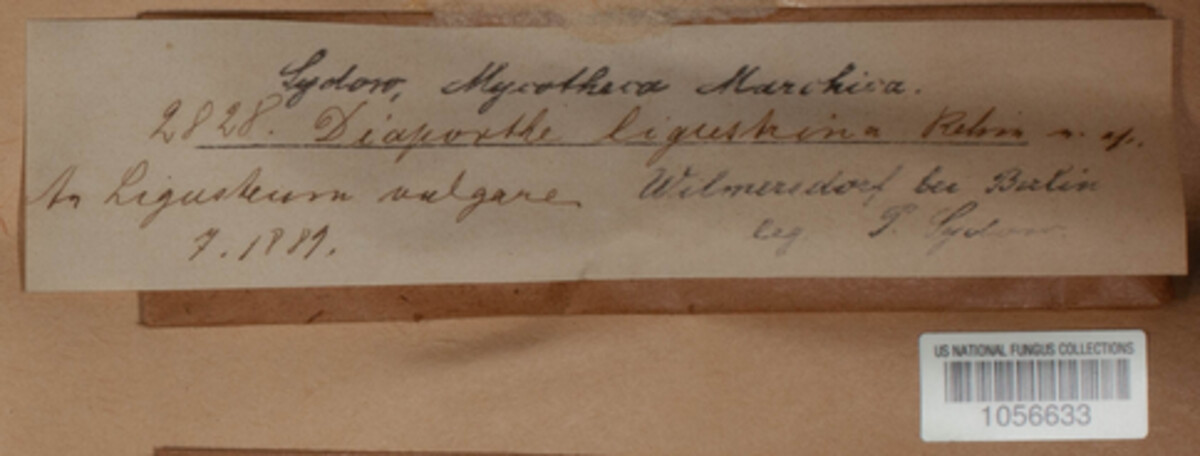 Sydow, Mycotheca Marchica.
2828. Diaporthe ligustrina Rehm n. sp.
An Ligustrum vulgare Wilmersdorf bei Berlin
7. 1889. leg. P. Sydow.
US NATIONAL FUNGUS COLLECTIONS
1056633